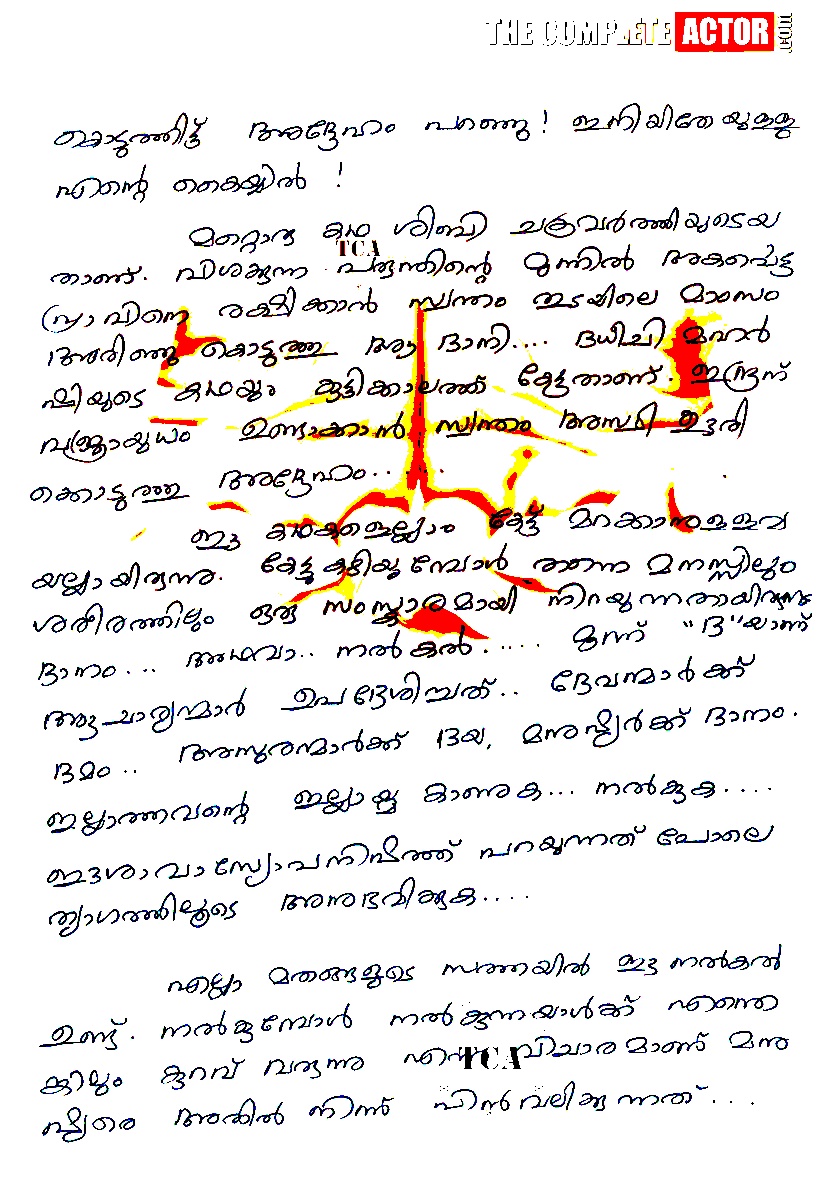 THE COMPLETE ACTOR .com
കൊടുത്തിട്ട് അദ്ദേഹം പറഞ്ഞു! ഇനിയിതേയുള്ളു
എന്റെ കൈയ്യിൽ !
മറ്റൊരു കഥ ശിബി ചക്രവർത്തിയുടെയ
TCA
താണ്. വിശക്കുന്ന പരുന്തിന്റെ മുന്നിൽ അകപ്പെട്ട
പ്രാവിനെ രക്ഷിക്കാൻ സ്വന്തം തുടയിലെ മാംസം
അരിഞ്ഞു കൊടുത്ത ആ ദാനി.... ദധീചി മഹർ
ഷിയുടെ കഥയും കുട്ടിക്കാലത്ത് കേട്ടതാണ്. ഇന്ദ്രന്
വജ്രായുധം ഉണ്ടാക്കാൻ സ്വന്തം അസ്ഥി ഊരി
ക്കൊടുത്തു അദ്ദേഹം.. ....
ഈ കഥകളെല്ലാം കേട്ട് മറക്കാനുള്ളവ
യല്ലായിരുന്നു. കേട്ടു കഴിയുമ്പോൾ തന്നെ മനസ്സിലും
ശരീരത്തിലും ഒരു സംസ്ക്കാരമായി നിറയുന്നതായിരുന്നു
ദാനം... അഥവാ.. നൽകൽ...... മൂന്ന് "ദ"യാണ്
ആചാര്യന്മാർ ഉപദേശിച്ചത്.. ദേവന്മാർക്ക്
ദമം.. അസുരന്മാർക്ക് ദയ, മനുഷ്യർക്ക് ദാനം.
ഇല്ലാത്തവന്റെ ഇല്ലായ്മ കാണുക... നൽകുക....
ഈശാവാസ്യോപനിഷത്ത് പറയുന്നത് പോലെ
ത്യാഗത്തിലൂടെ അനുഭവിക്കുക....
എല്ലാ മതങ്ങളുടെ സത്തയിൽ ഈ നൽകൽ
ഉണ്ട്. നൽകുമ്പോൾ നൽകുന്നയാൾക്ക് എന്തെ
ങ്കിലും കുറവ് വരുന്നു എന്ന വിചാരമാണ് മനു
TCA
ഷ്യരെ അതിൽ നിന്ന് പിൻവലിക്കുന്നത്...